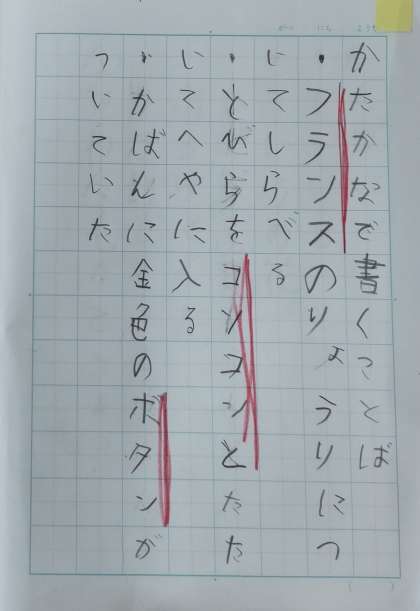 かたかなで書くことば
・フランスのりょうりにつ
いてしらべる
・とびらをコンコンとたた
いてへやに入る
・かばんに金色のボタンが
ついていた